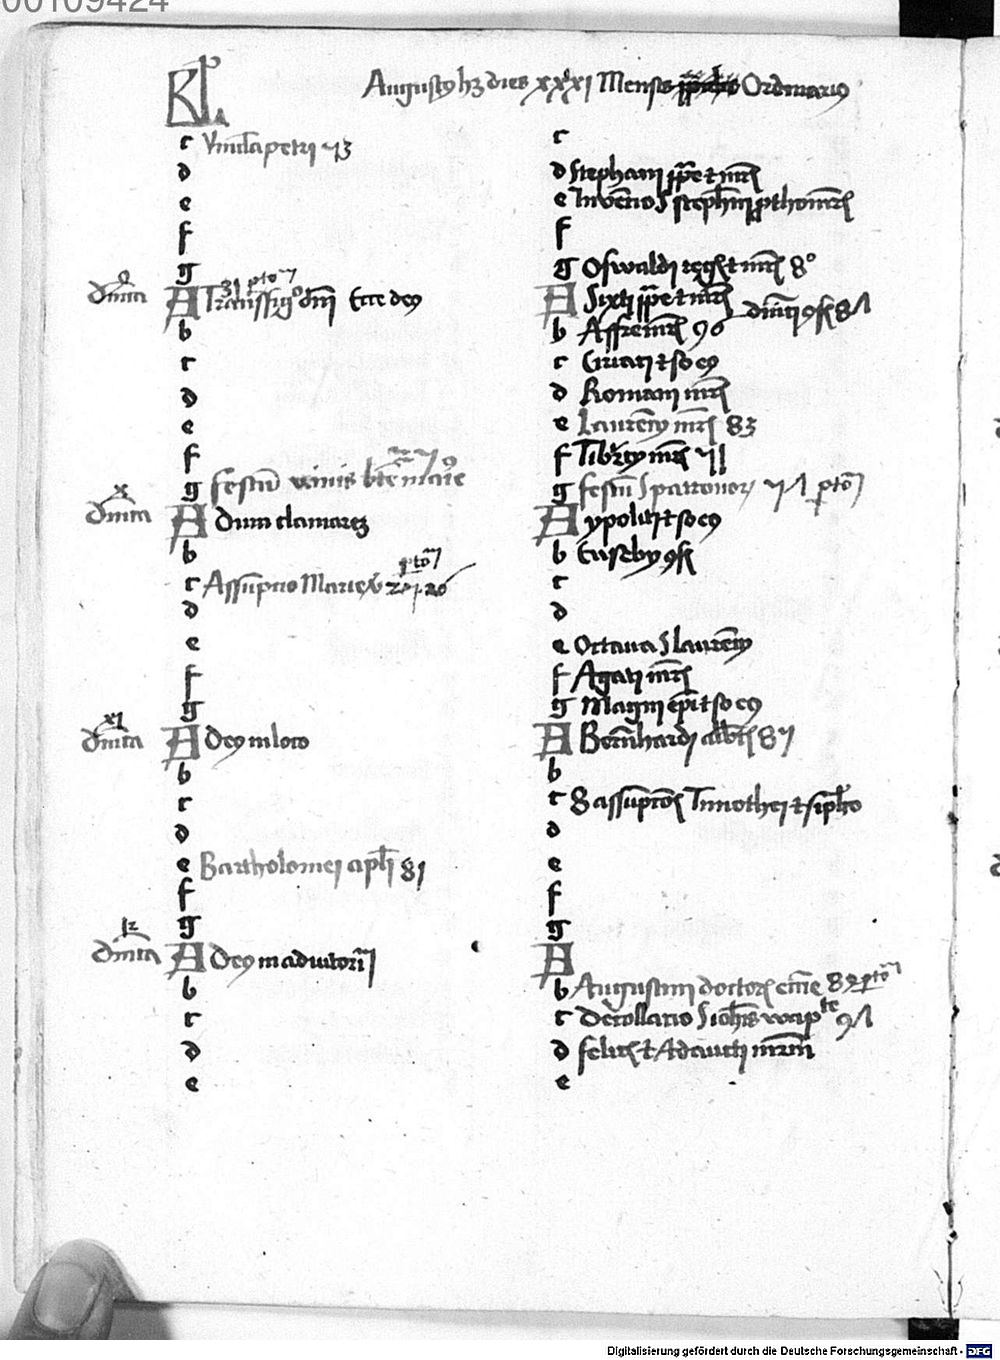 00109424
KL Augusty hz dies xxxi Mensis Ordinario
c Vincula petri 73
d
e
f
g
dnica A Transfigo dni Ecce deus
b
c
d
e
f
g festu nivis bte marie
x dnica A Dum clamarez
b
c Assuptio Marie v
d
e
f
g
xi dnica A Deus in loco
b
c
d
e Bartholomei apli 81
f
g
12 dnica A Deus in adiutoriu
b
c
d
e
c
d Stephani ppe et mris
e Invencio S stephani pthomris
f
g Oswaldi regis et mris 80
A Sixti ppe et mris
b Affre mris 96
c Ciriaci et socs
d Romani mris
e Laurency mris 83
f Tiburcy mris 71
g festu S patronor
A ypoliti et socs
b Euseby 9f
c
d
e Octava S laurency
f Agati mris
g Magni epi et socs
A Bernhardi abbtis 87
b
c 8 assuptois Timothei et simpho
d
e
f
g
A
b Augustini doctoris
c Decollatio S iohis
d felicis et Adaucti mrm
e
Digitalisierung gefördert durch die Deutsche Forschungsgemeinschaft - DFG